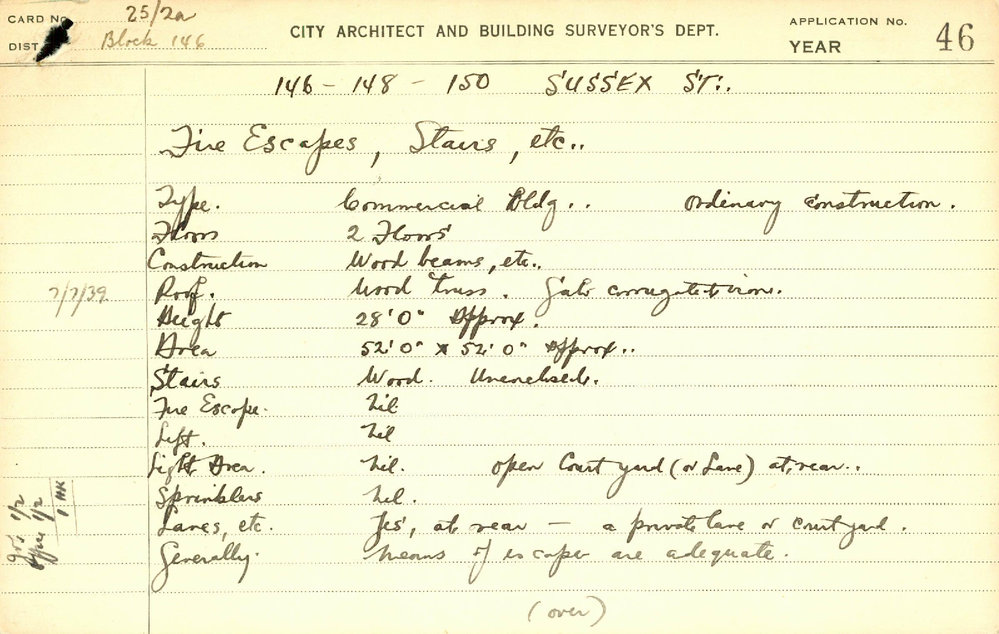 CARD No. 25/2a
DIST. Block 146
CITY ARCHITECT AND BUILDING SURVEYOR'S DEPT.
APPLICATION No.
YEAR
46
146 - 148 - 150 SUSSEX ST.
Fire Escapes, Stairs, etc..
Type. Commercial Bldg.. Ordinary construction.
Floors 2 Floors
Construction Wood beams, etc..
7/7/39 Roof. Wood truss. Galv corrugated iron.
Height 28'0" Approx.
Area 52'0" x 52'0" Approx..
Stairs Wood. Unenclosed.
Fire Escape. Nil
Lift. Nil
Light Area. Nil. open Court yard (or Lane) at rear..
Sprinklers Nil.
Lanes, etc. Yes, at rear — a private lane or court yard.
Generally. Means of escape are adequate.
(over)